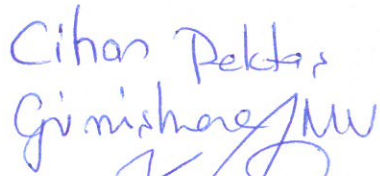 Cihan Pektaş
Gümüşhane / MV